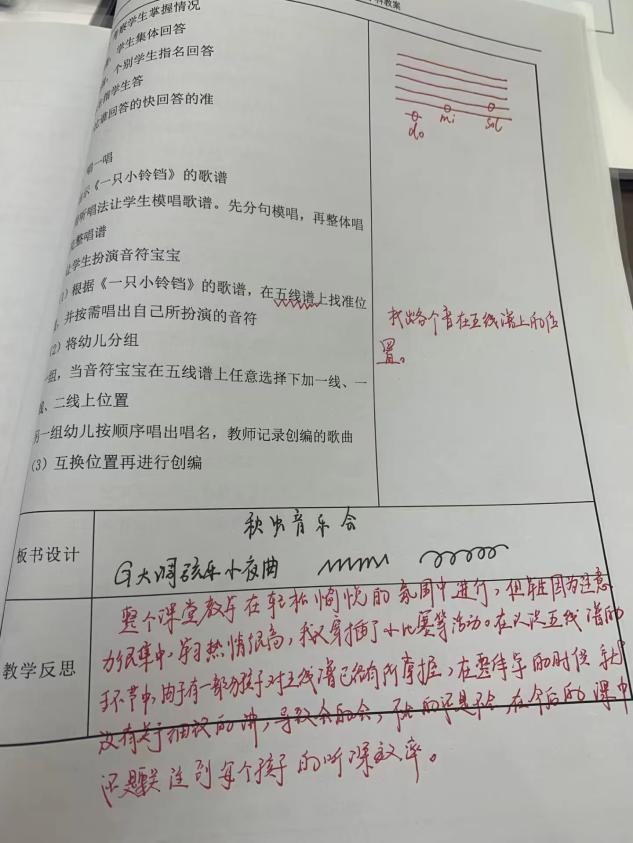 科教案
察学生掌握情况
学生集体回答
个别学生指名回答
指学生答
回答的快回答的准
唱一唱
示《一只小铃铛》的歌谱
听唱法让学生模唱歌谱。先分句模唱，再整体唱
完整唱谱
让学生扮演音符宝宝
(1) 根据《一只小铃铛》的歌谱，在五线谱上找准位
，并按需唱出自己所扮演的音符
(2) 将幼儿分组
组，当音符宝宝在五线谱上任意选择下加一线、一
、二线上位置
另一组幼儿按顺序唱出唱名，教师记录创编的歌曲
(3) 互换位置再进行创编
do mi sol
找出各个音在五线谱上的位
置。
板书设计
秋虫音乐会
G大调弦乐小夜曲
教学反思
整个课堂教学在轻松愉悦的氛围中进行，但
因为注意
力很集中，学习热情很高，我又穿插了小比赛等活动。在认识五线谱的
环节中，由于有一部分孩子对五线谱已经有所掌握，在
的时候我
没有
细致的讲，导致会的会，不会的还是不会，在今后的课中
还是要关注到每个孩子的听课效率。